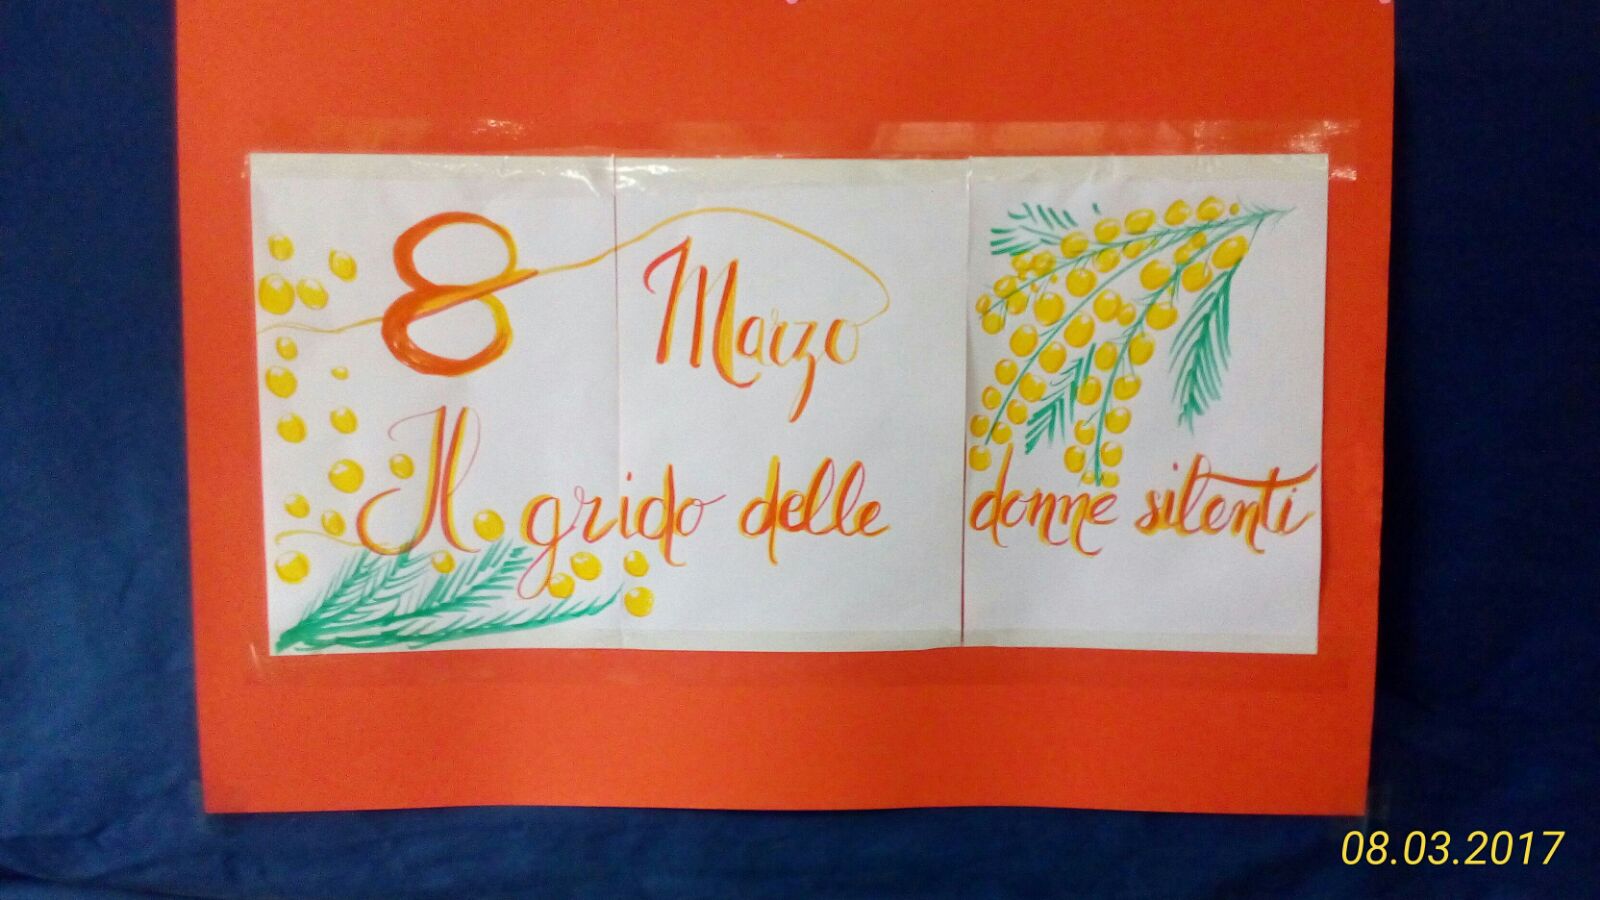 8 Marzo
Il grido delle donne silenti
08.03.2017